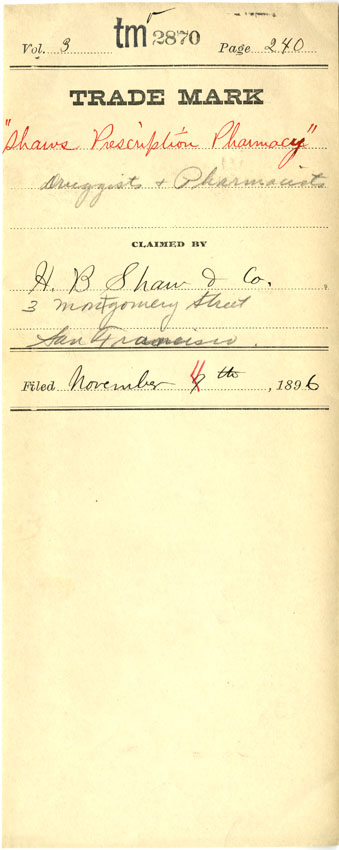 tm 2870
Vol. 3 Page 240
TRADE MARK
"Shaws Prescription Pharmacy"
Druggists & Pharmacists
CLAIMED BY
H. B Shaw & Co.
3 Montgomery Street
San Francisco.
Filed November 4 th, 1896